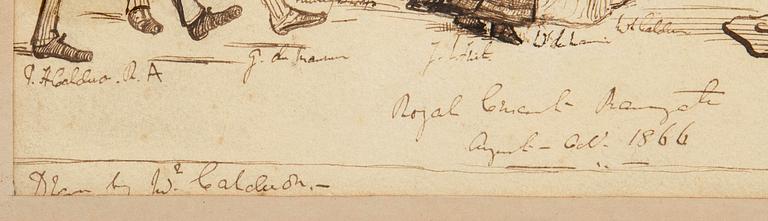 W. Calderon
G. du Maurier
P. H. Calderon. R. A
Royal Crescent Ramsgate
August - Oct. 1866
Drawn by Wm. Calderon.-